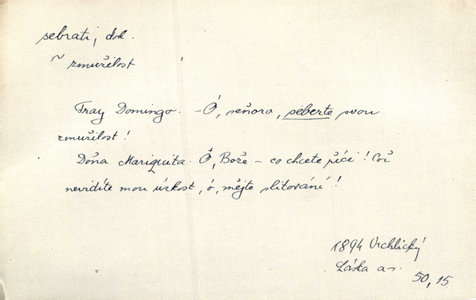 sebrati, dok.
~ zmužilost
Fray Domingo. - Ó, seňoro, seberte svou
zmužilost!
Doňa Mariquita. Ó, Bože - co chcete říci! Což
nevidíte mou úzkost, ó, mějte slitování!
1894 Vrchlický
Láska a s.
50, 15